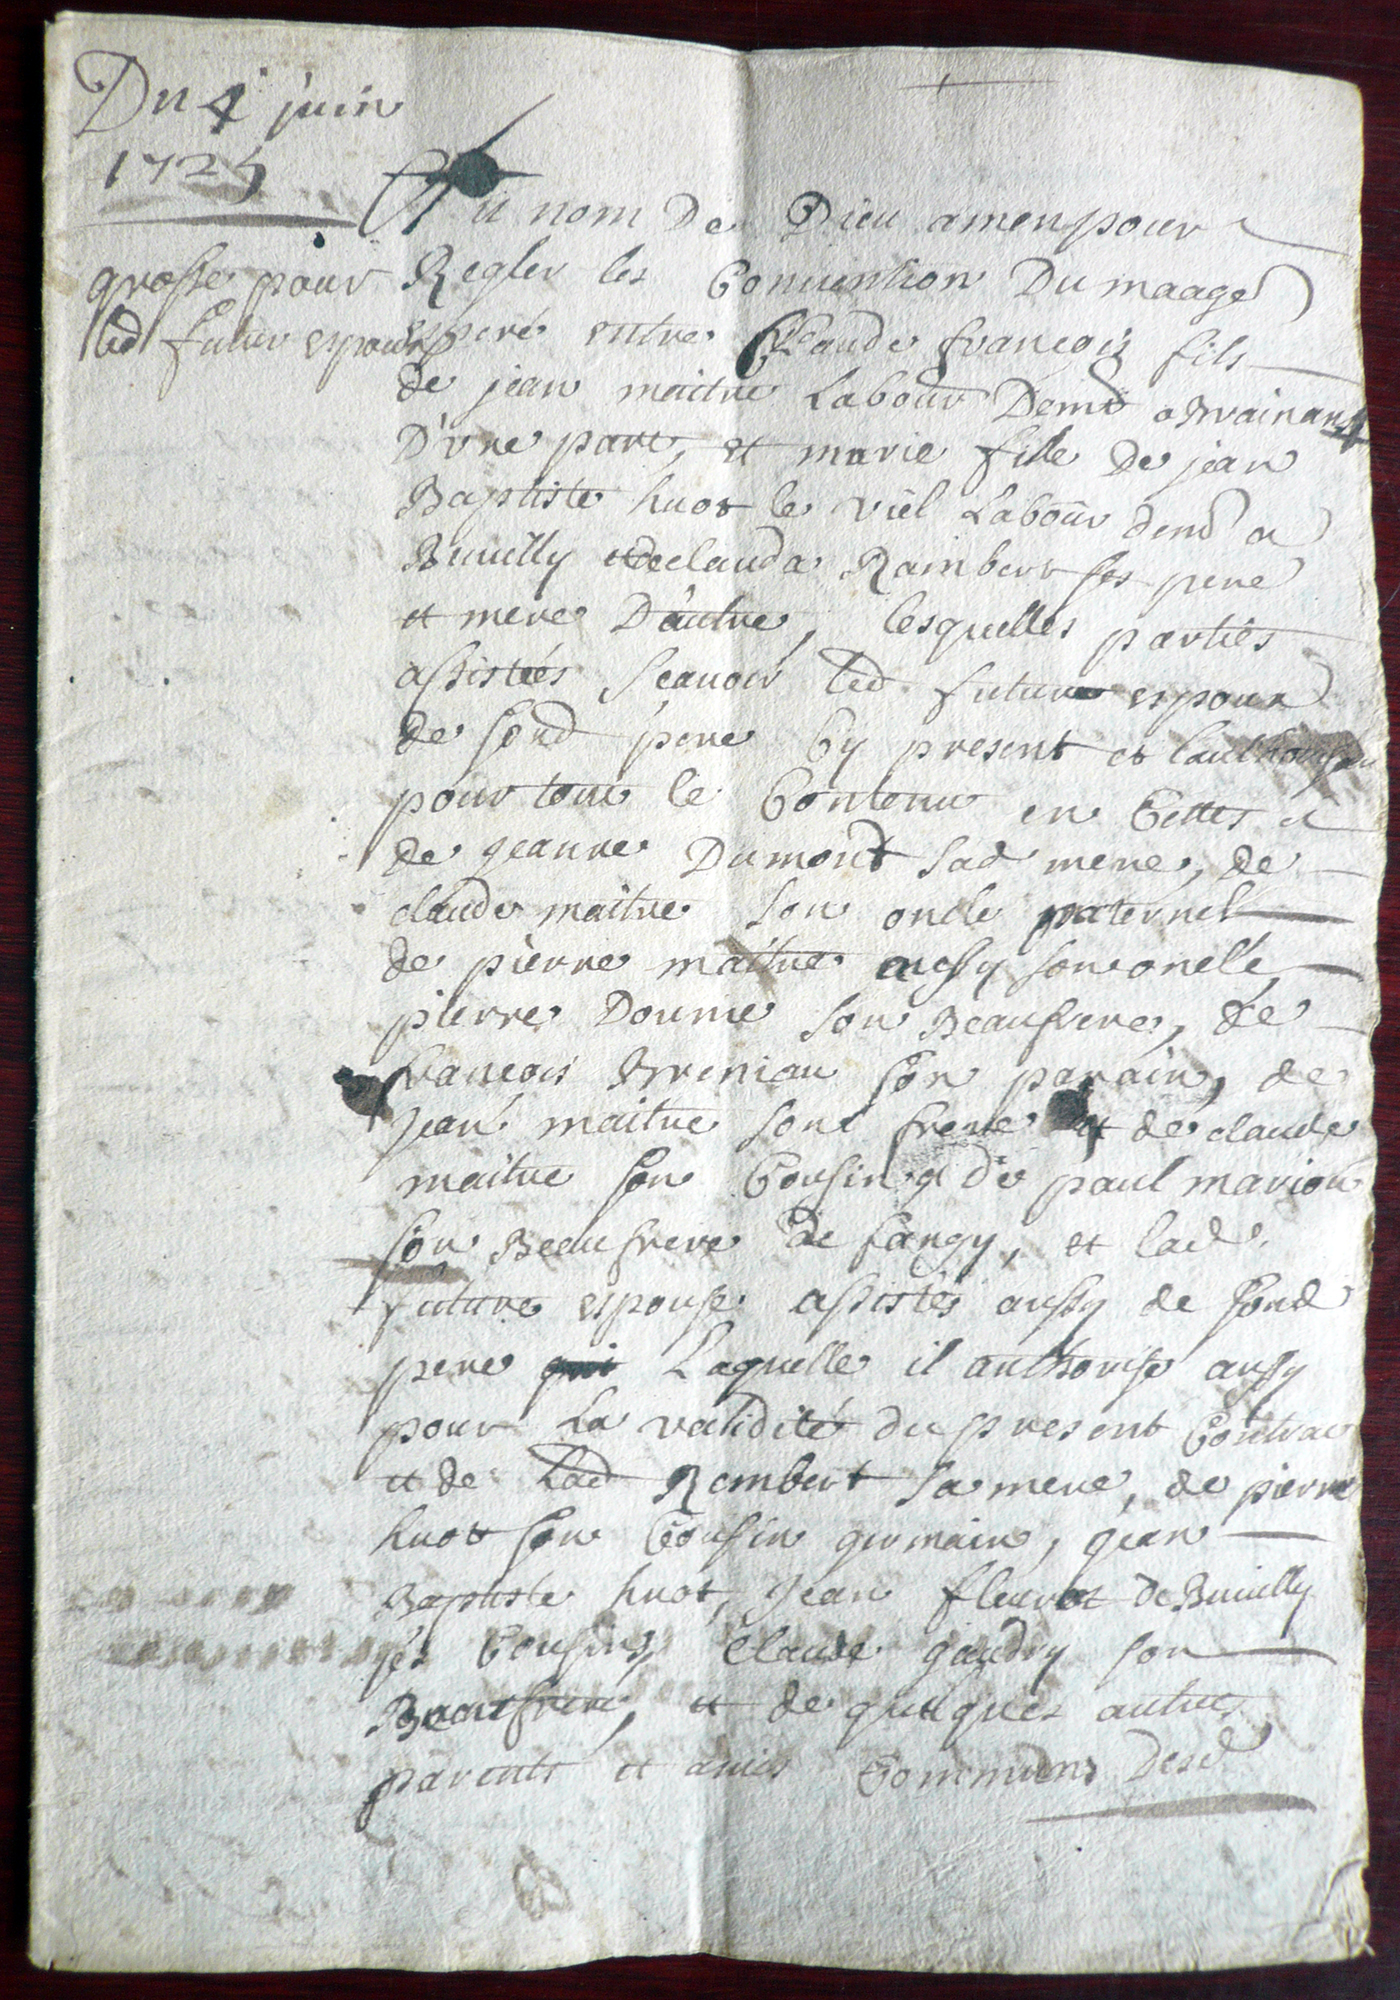 Du 4 juin
1725
grosse pour
led futur espoux
Au nom De Dieu amen pour
Regler les Convention Du maage
esperé entre Claude françois fils
de jean maitre Labour Demt a
D'vne part, et marie fille de jean
Baptiste huot le viel Labour demt a
Beuilly et de clauda Rambert ses pere
et mere D'autre, lesquelles parties
assistées scauoir led futur espoux
de sond pere Cy present et
pour tout le Contenu en Cettes et
de jeanne Dumont sad mere, de
claude maitre son oncle paternel
de pierre maitre aussy son oncle
pierre Doume son Beaufrere, de
francois son parain, de
jean maitre son frere et de claude
maitre son Cousin, de paul marion
son Beaufrere de sangy, et lad
future espouse assistés aussy de sond
pere Laquelle il authorise aussy
pour La validité du present Contrac
et de Lad Rembert sa mere, de pierre
huot son Cousin germain, jean
Baptiste huot, jean fleurot de Beuilly
ses Cousins, Claude gaudry son
Beaufrere, et de quelques autres
parents et amis Communs Desd